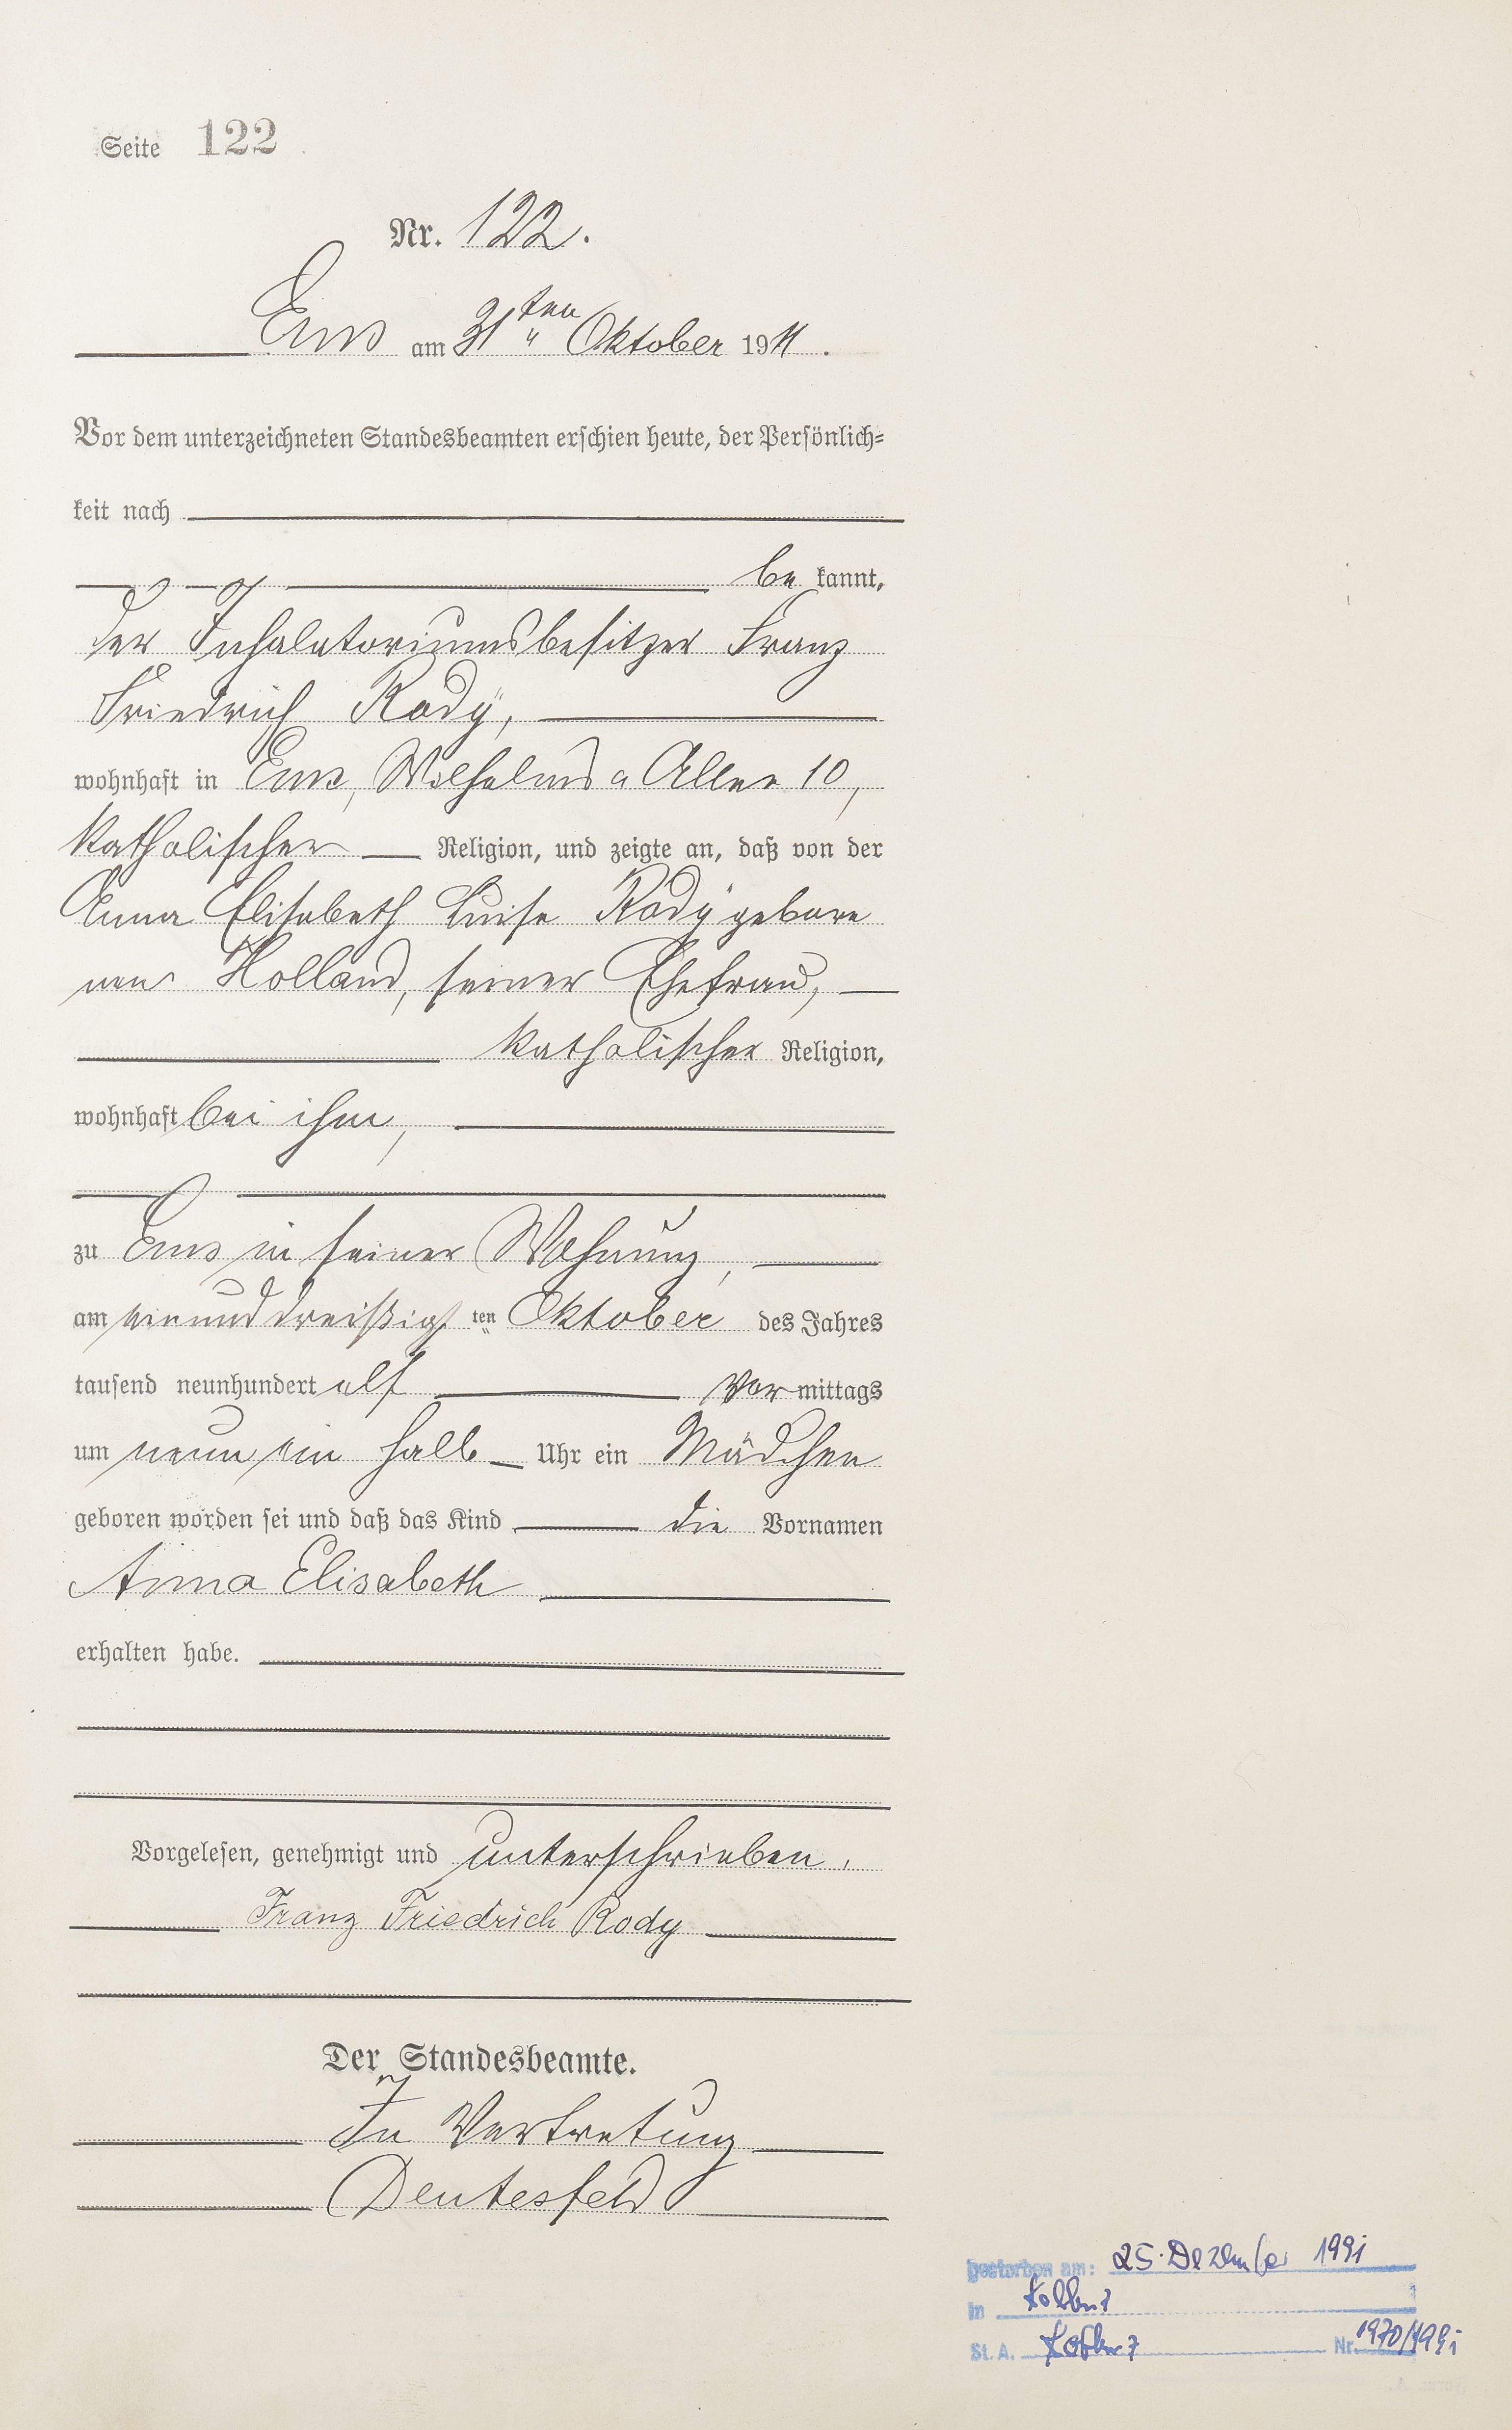 Seite 122
Nr. 122.
Ems am 31ten Oktober 1911.
Vor dem unterzeichneten Standesbeamten erschien heute, der Persönlich-
keit nach
be kannt,
der Inhalatoriumsbesitzer Franz
Friedrich Rody,
wohnhaft in Ems, Wilhelms-Allee 10,
katholischer Religion, und zeigte an, daß von der
Anna Elisabeth Luise Rody gebore
nen Holland, seiner Ehefrau,
katholischer Religion,
wohnhaft bei ihm,
zu Ems in seiner Wohnung,
am einunddreißigsten Oktober des Jahres
tausend neunhundert elf Vormittags
um neun ein halb Uhr ein Mädchen
geboren worden sei und daß das Kind die Vornamen
Anna Elisabeth
erhalten habe.
Vorgelesen, genehmigt und unterschrieben.
Franz Friedrich Rody
Der Standesbeamte.
In Vertretung
Deutesfeld
gestorben am: 25. Dezember 1991
in Koblenz
St. A. Koblenz Nr. 1970/1991